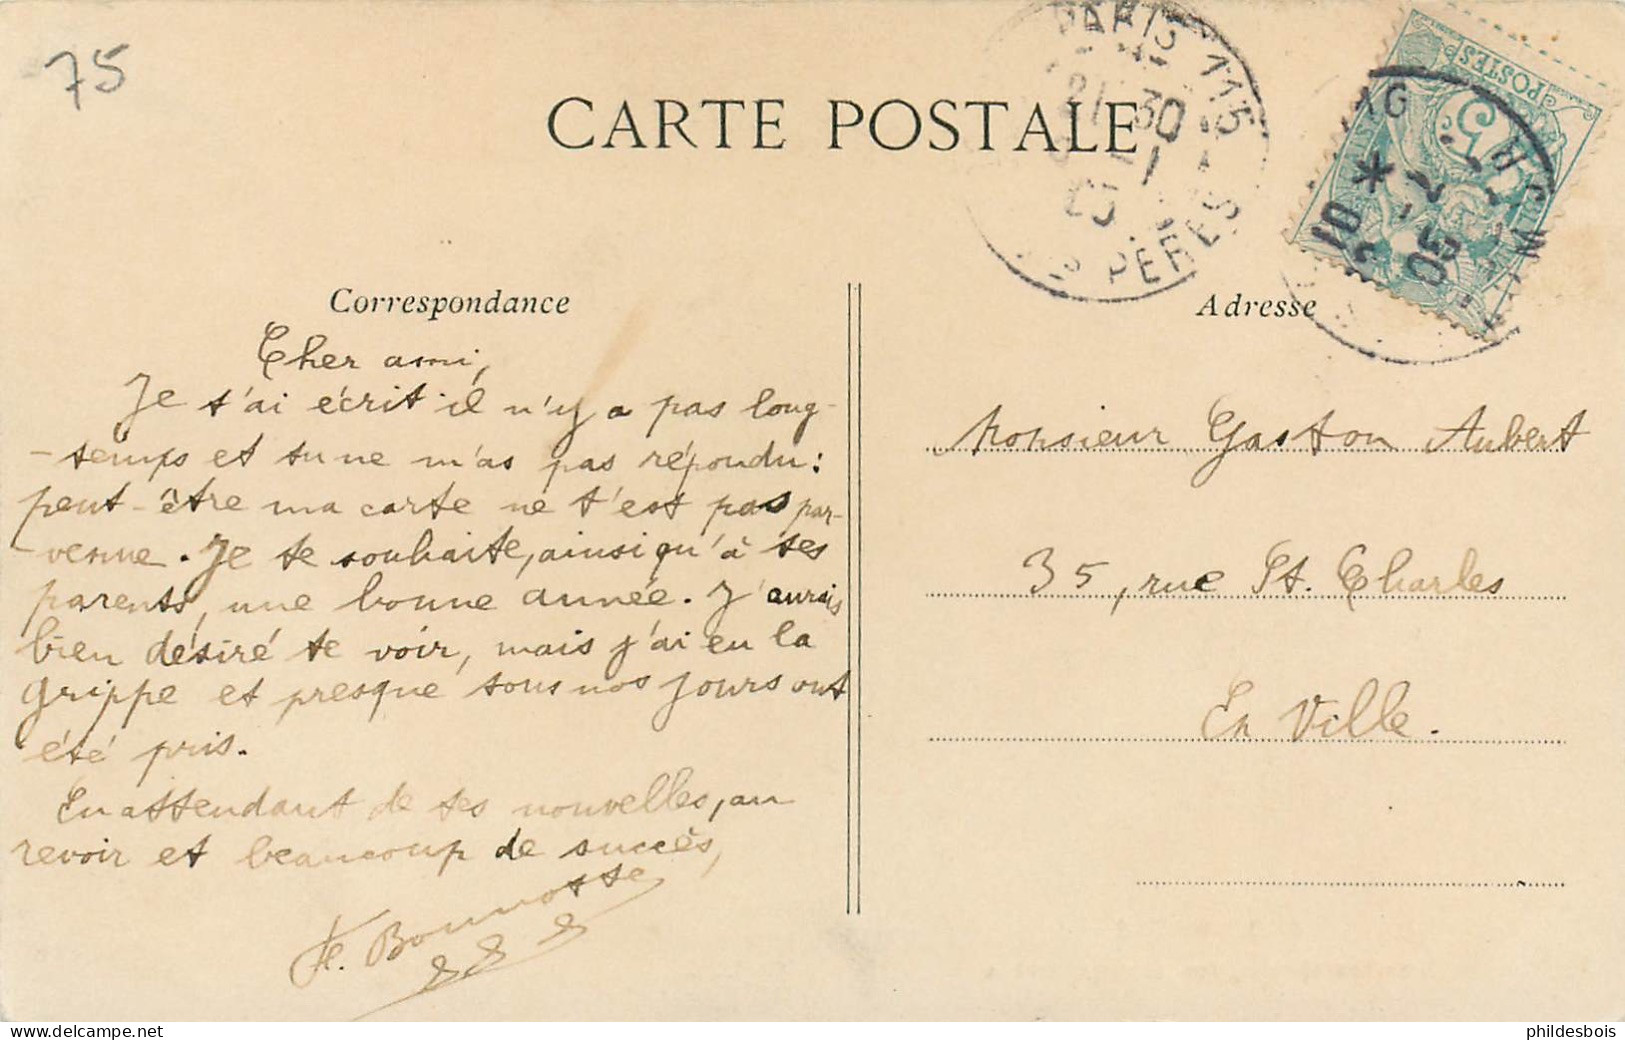 75
CARTE POSTALE
PARIS 113
21 30
-1
05
PERES
POSTES
5
10
* 2
05
Correspondance
Cher ami,
Je t'ai écrit il n'y a pas long-
-temps et tu ne m'as pas répondu :
peut-être ma carte ne t'est pas par-
-venue. Je te souhaite, ainsi qu'à tes
parents, une bonne année. J'aurais
bien désiré te voir, mais j'ai eu la
grippe et presque tous nos jours ont
été pris.
En attendant de tes nouvelles, au
revoir et beaucoup de succès,
H. Bonnotte
Adresse
Monsieur Gaston Aubert
35, rue St. Charles
En Ville.
phildesbois